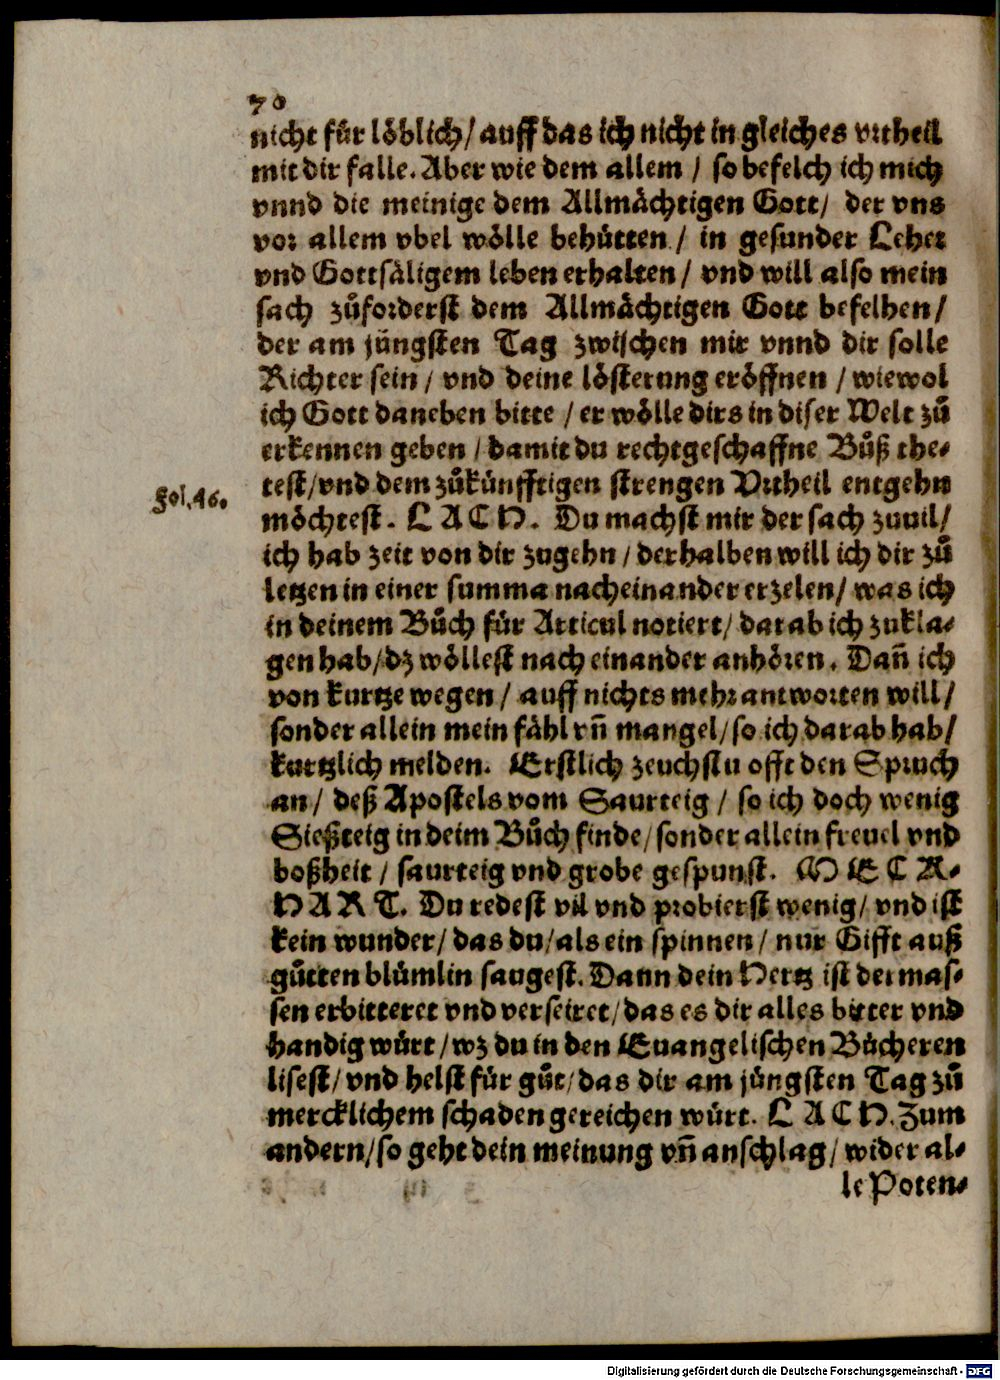 70
nicht für löblich/ auff das ich nicht in gleiches vrtheil
mit dir falle. Aber wie dem allem / so befelch ich mich
vnnd die meinige dem Allmächtigen Gott/ der vns
vor allem vbel wölle behütten / in gesunder Lehet
vnd Gottsäligem leben erhalten/ vnd will also mein
sach zůforderst dem Allmächtigen Gott befelhen/
der am jüngsten Tag zwischen mir vnnd dir solle
Richter sein / vnd deine lösterung eröffnen / wiewol
ich Gott daneben bitte / er wölle dirs in diser Welt zů
erkennen geben / damit du rechtgeschaffne Bůß the-
test/vnd dem zůkünfftigen strengen Vrtheil entgehn
Fol. 46.
möchtest. L A C H. Du machst mir der sach zuuil/
ich hab zeit von dir zugehn / derhalben will ich dir zů
letzen in einer summa nacheinander erzelen/ was ich
in deinem Bůch für Articul notiert/ darab ich zukla-
gen hab/dz wöllest nach einander anhören. Dañ ich
von kurtze wegen / auff nichts mehr antworten will/
sonder allein mein fähl vñ mangel/so ich darab hab/
kurtzlich melden. Erstlich zeuchstu offt den Spruch
an/ deß Apostels vom Saurteig / so ich doch wenig
Sießteig in deim Bůch finde/sonder allein freuel vnd
boßheit / saurteig vnd grobe gespunst. M E C K-
H A R T. Du redest vil vnd probierst wenig/ vnd ist
kein wunder/ das du/als ein spinnen / nur Gifft auß
gůtten blümlin saugest. Dann dein Hertz ist dermas-
sen erbitteret vnd verseiret/das es dir alles bitter vnd
handig würt/wz du in den Euangelischen Bücheren
lisest/ vnd helst für gůt/das dir am jüngsten Tag zů
mercklichem schaden gereichen würt. L A C H. Zum
andern/so geht dein meinung vñ anschlag/ wider al-
le Poten-
Digitalisierung gefördert durch die Deutsche Forschungsgemeinschaft - DFG